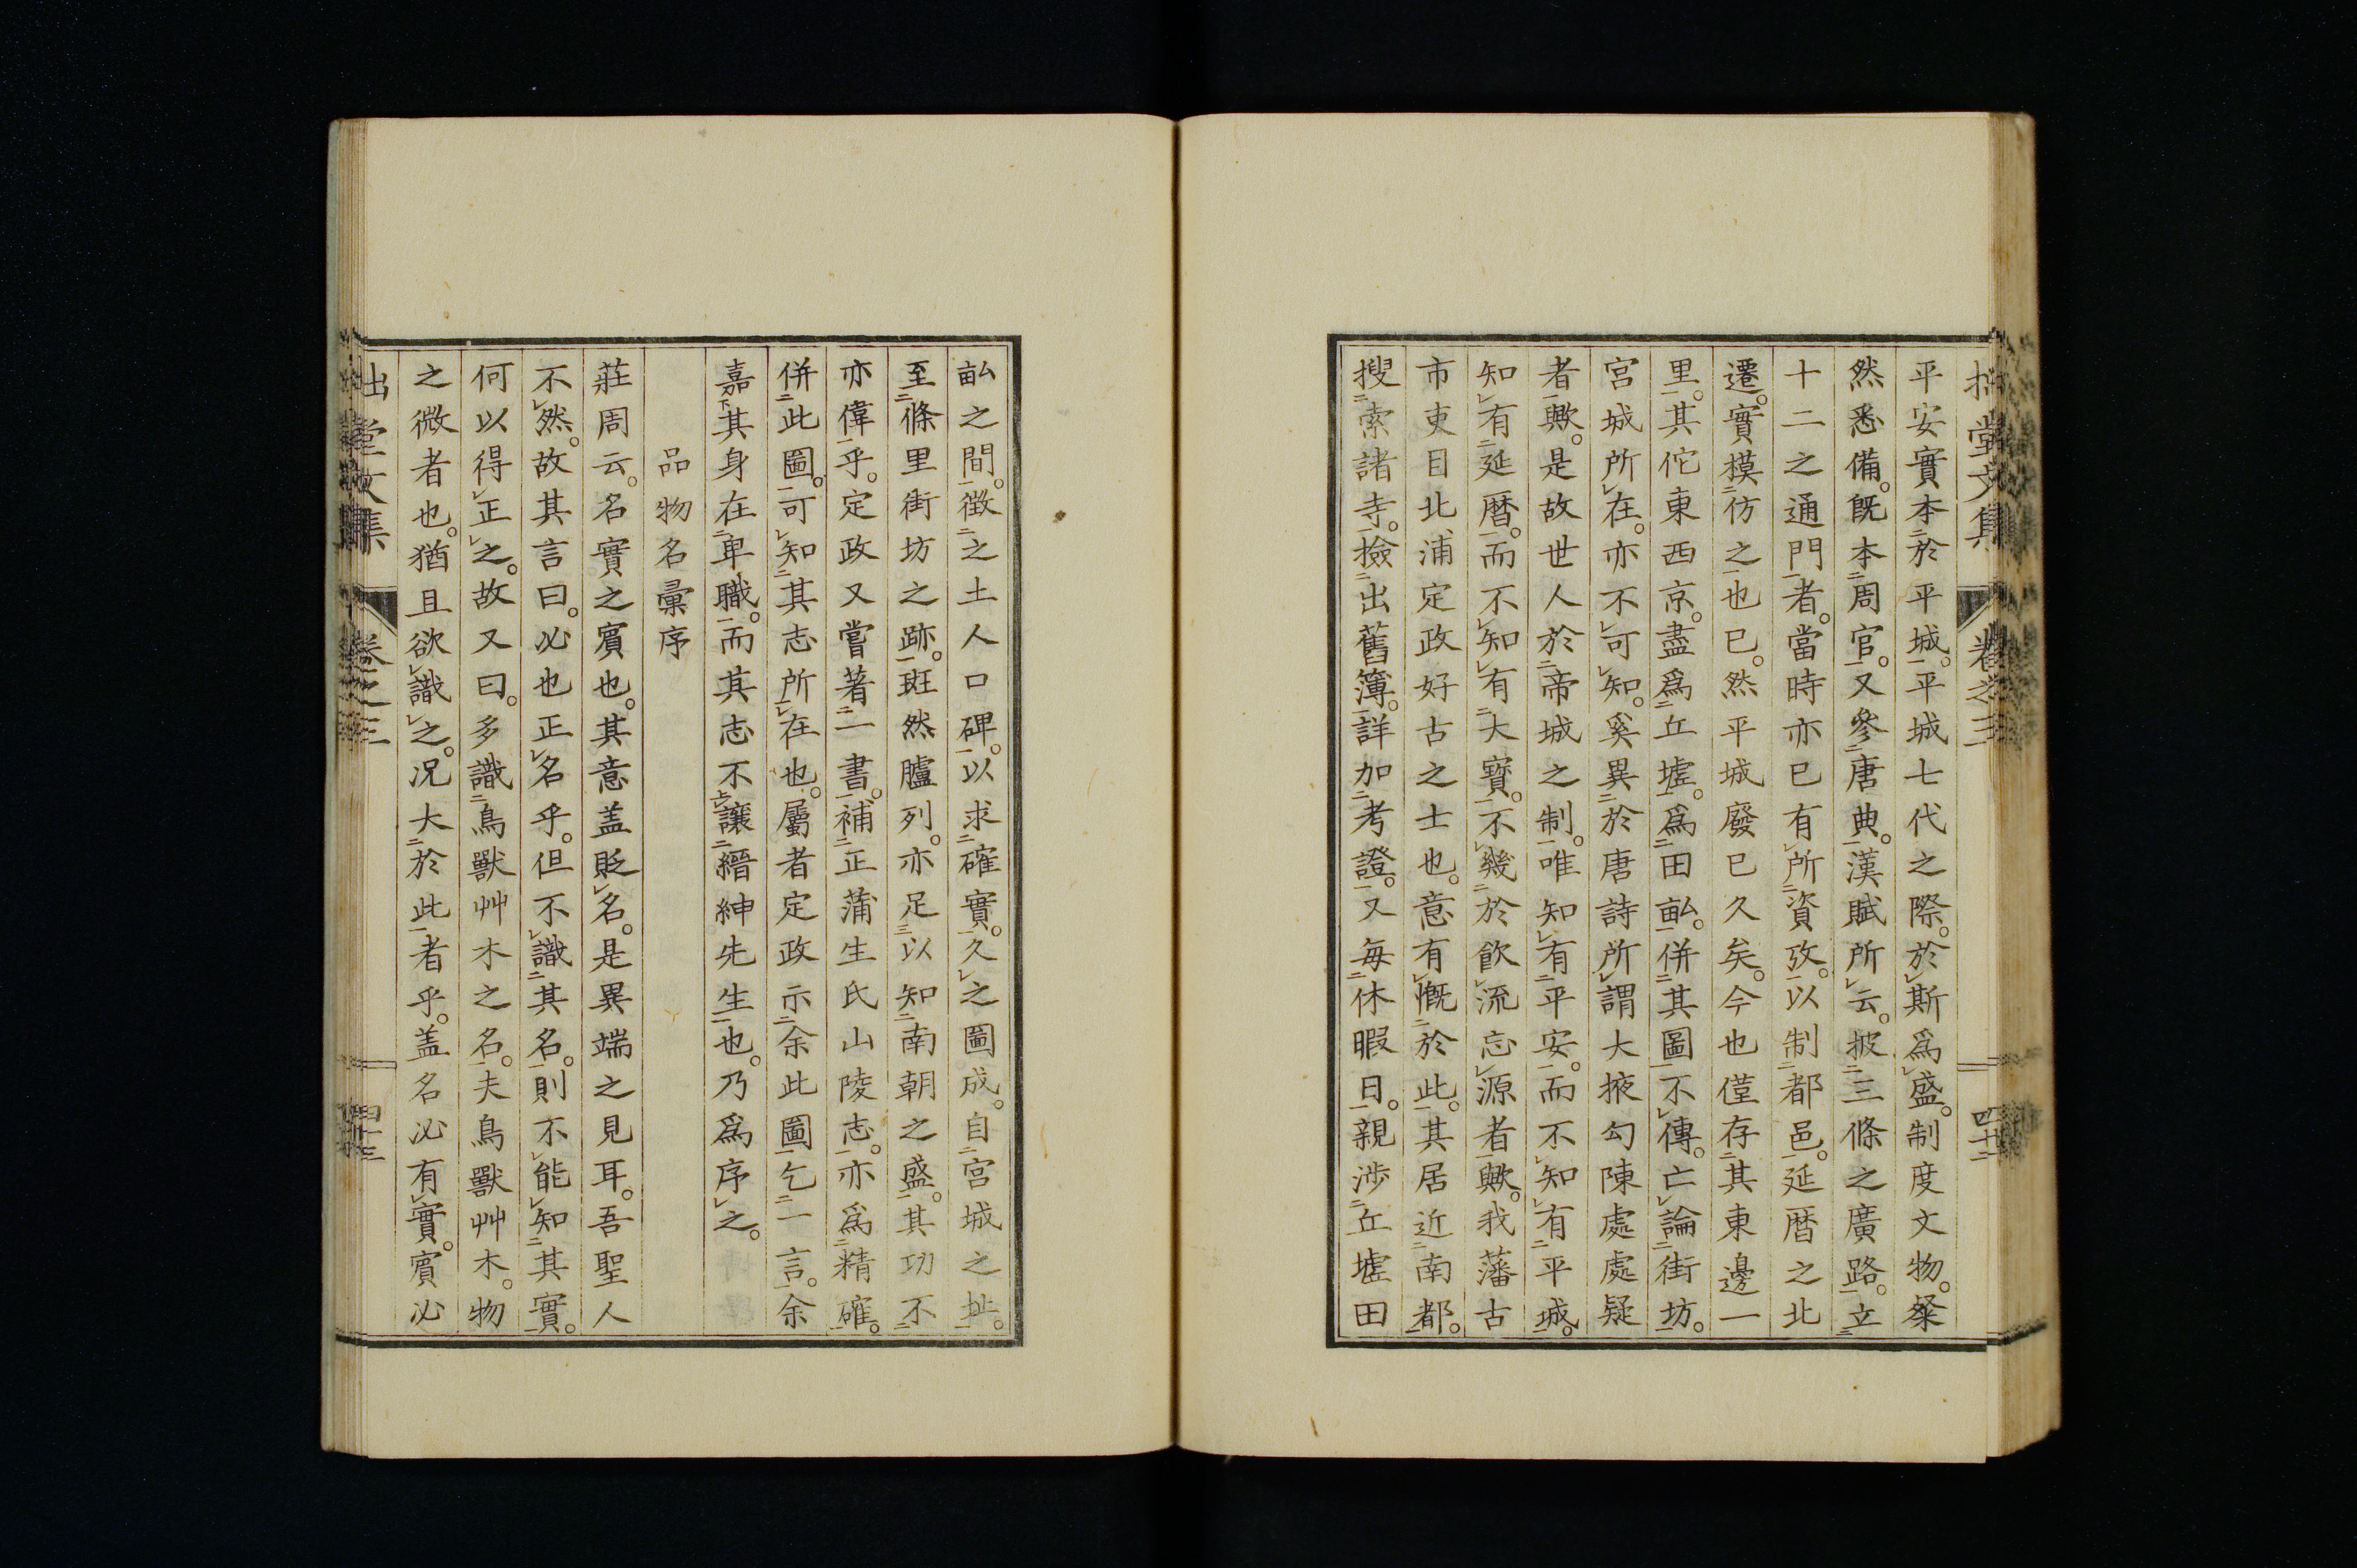 拙堂文集 卷之三 四十二
平安實本於平城。平城七代之際。於斯爲盛。制度文物。粲
然悉備。既本周官。又參唐典。漢賦所云。披三條之廣路。立
十二之通門者。當時亦已有所資攷。以制都邑。延暦之北
遷。實模仿之也已。然平城廢已久矣。今也僅存其東邊一
里。其佗東西京。盡爲丘墟。爲田畝。併其圖不傳。亡論街坊。
宮城所在。亦不可知。奚異於唐詩所謂大掖勾陳處處疑
者歟。是故世人於帝城之制。唯知有平安。而不知有平城。
知有延暦。而不知有大寶。不幾於飮流忘源者歟。我藩古
市吏目北浦定政好古之士也。意有慨於此。其居近南都。
搜索諸寺。撿出舊簿。詳加考證。又每休暇日。親渉丘墟田
畝之間。徴之土人口碑。以求確實。久之圖成。自宮城之址。
至條里街坊之跡。斑然臚列。亦足以知南朝之盛。其功不
亦偉乎。定政又嘗著一書。補正蒲生氏山陵志。亦爲精確。
併此圖。可知其志所在也。屬者定政示余此圖乞一言。余
嘉其身在卑職。而其志不讓縉紳先生也。乃爲序之。
品物名彙序
莊周云。名實之賓也。其意盖貶名。是異端之見耳。吾聖人
不然。故其言曰。必也正名乎。但不識其名。則不能知其實。
何以得正之。故又曰。多識鳥獸艸木之名。夫鳥獸艸木。物
之微者也。猶且欲識之。况大於此者乎。盖名必有實。賓必
拙堂文集 卷之三 四十三